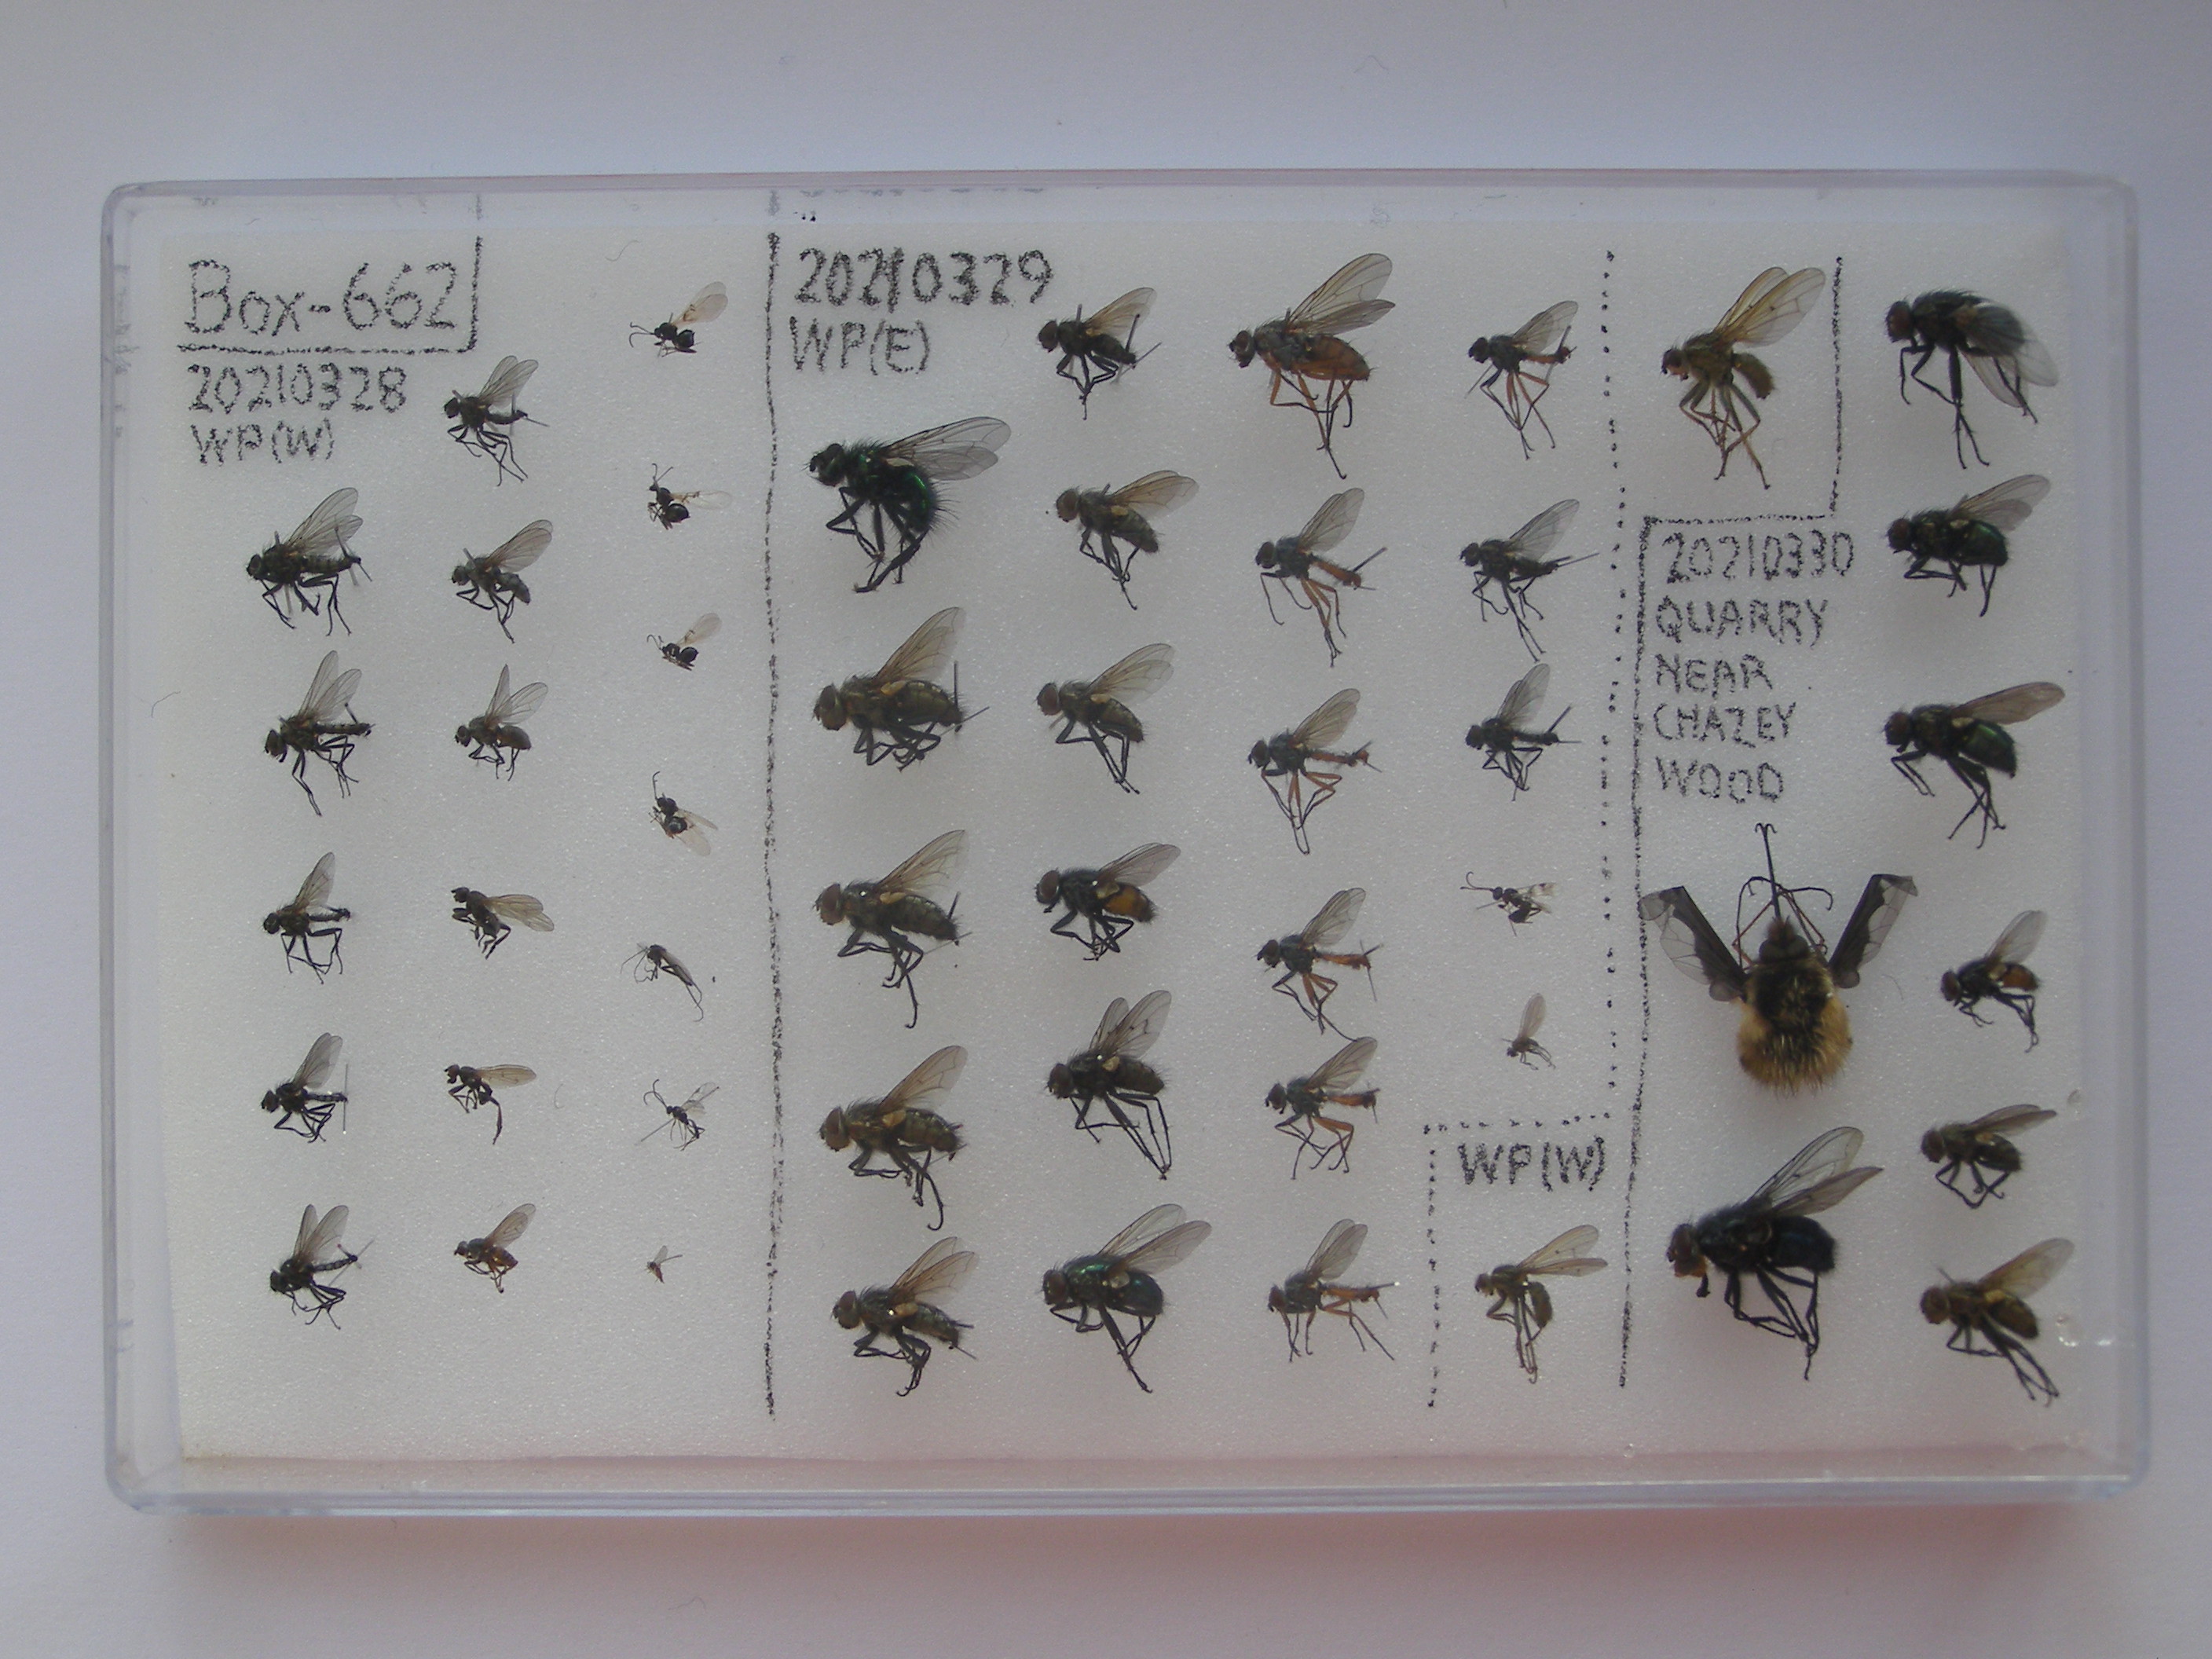 Box-662
20210328
WP(W)
20210329
WP(E)
WP(W)
20210330
QUARRY
NEAR
CHAZEY
WOOD